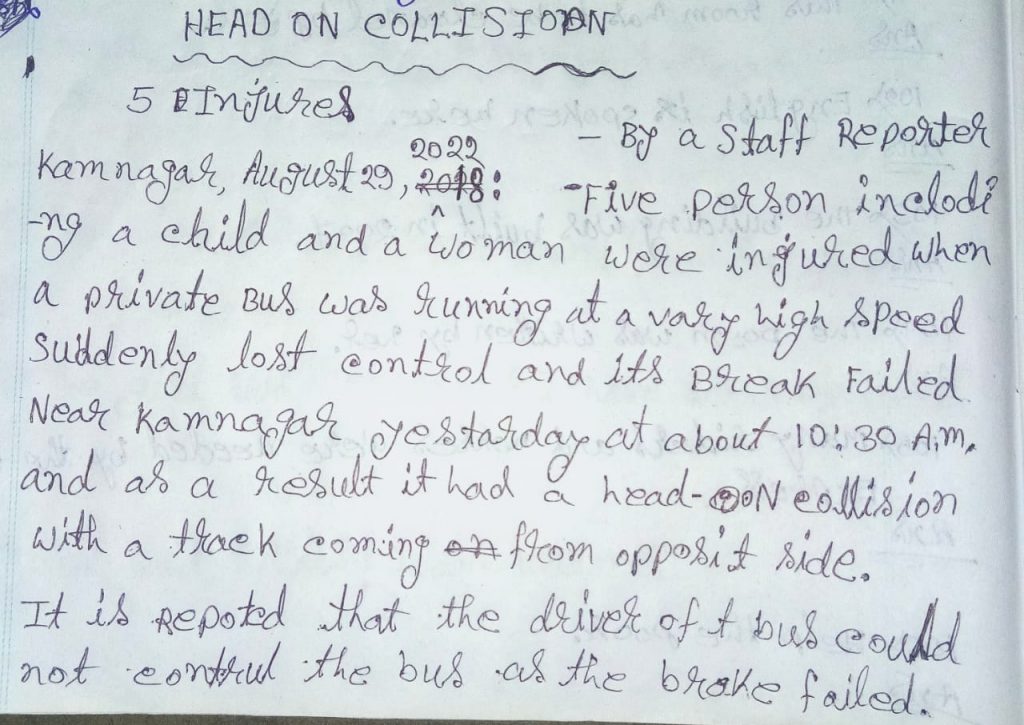 HEAD ON COLLISION
5 Injures
- By a Staff Reporter
Kamnagar, August 29, 2022: - Five person inclodi
-ng a child and a woman were injured when
a private Bus was running at a vary high speed
Suddenly lost control and its Break Failed
Near Kamnagar yestarday at about 10:30 A.m.
and as a result it had a head-ON collision
with a track coming from opposit side.
It is Repoted that the driver of t bus could
not contrul the bus as the brake failed.